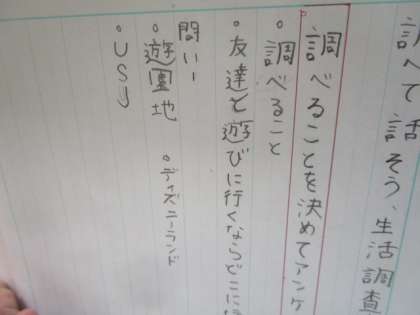 調べて話そう、生活調査
調べることを決めてアンケ
。調べること
。友達と遊びに行くならどこに
問い一
。遊園地 。ディズニーランド
。USJ